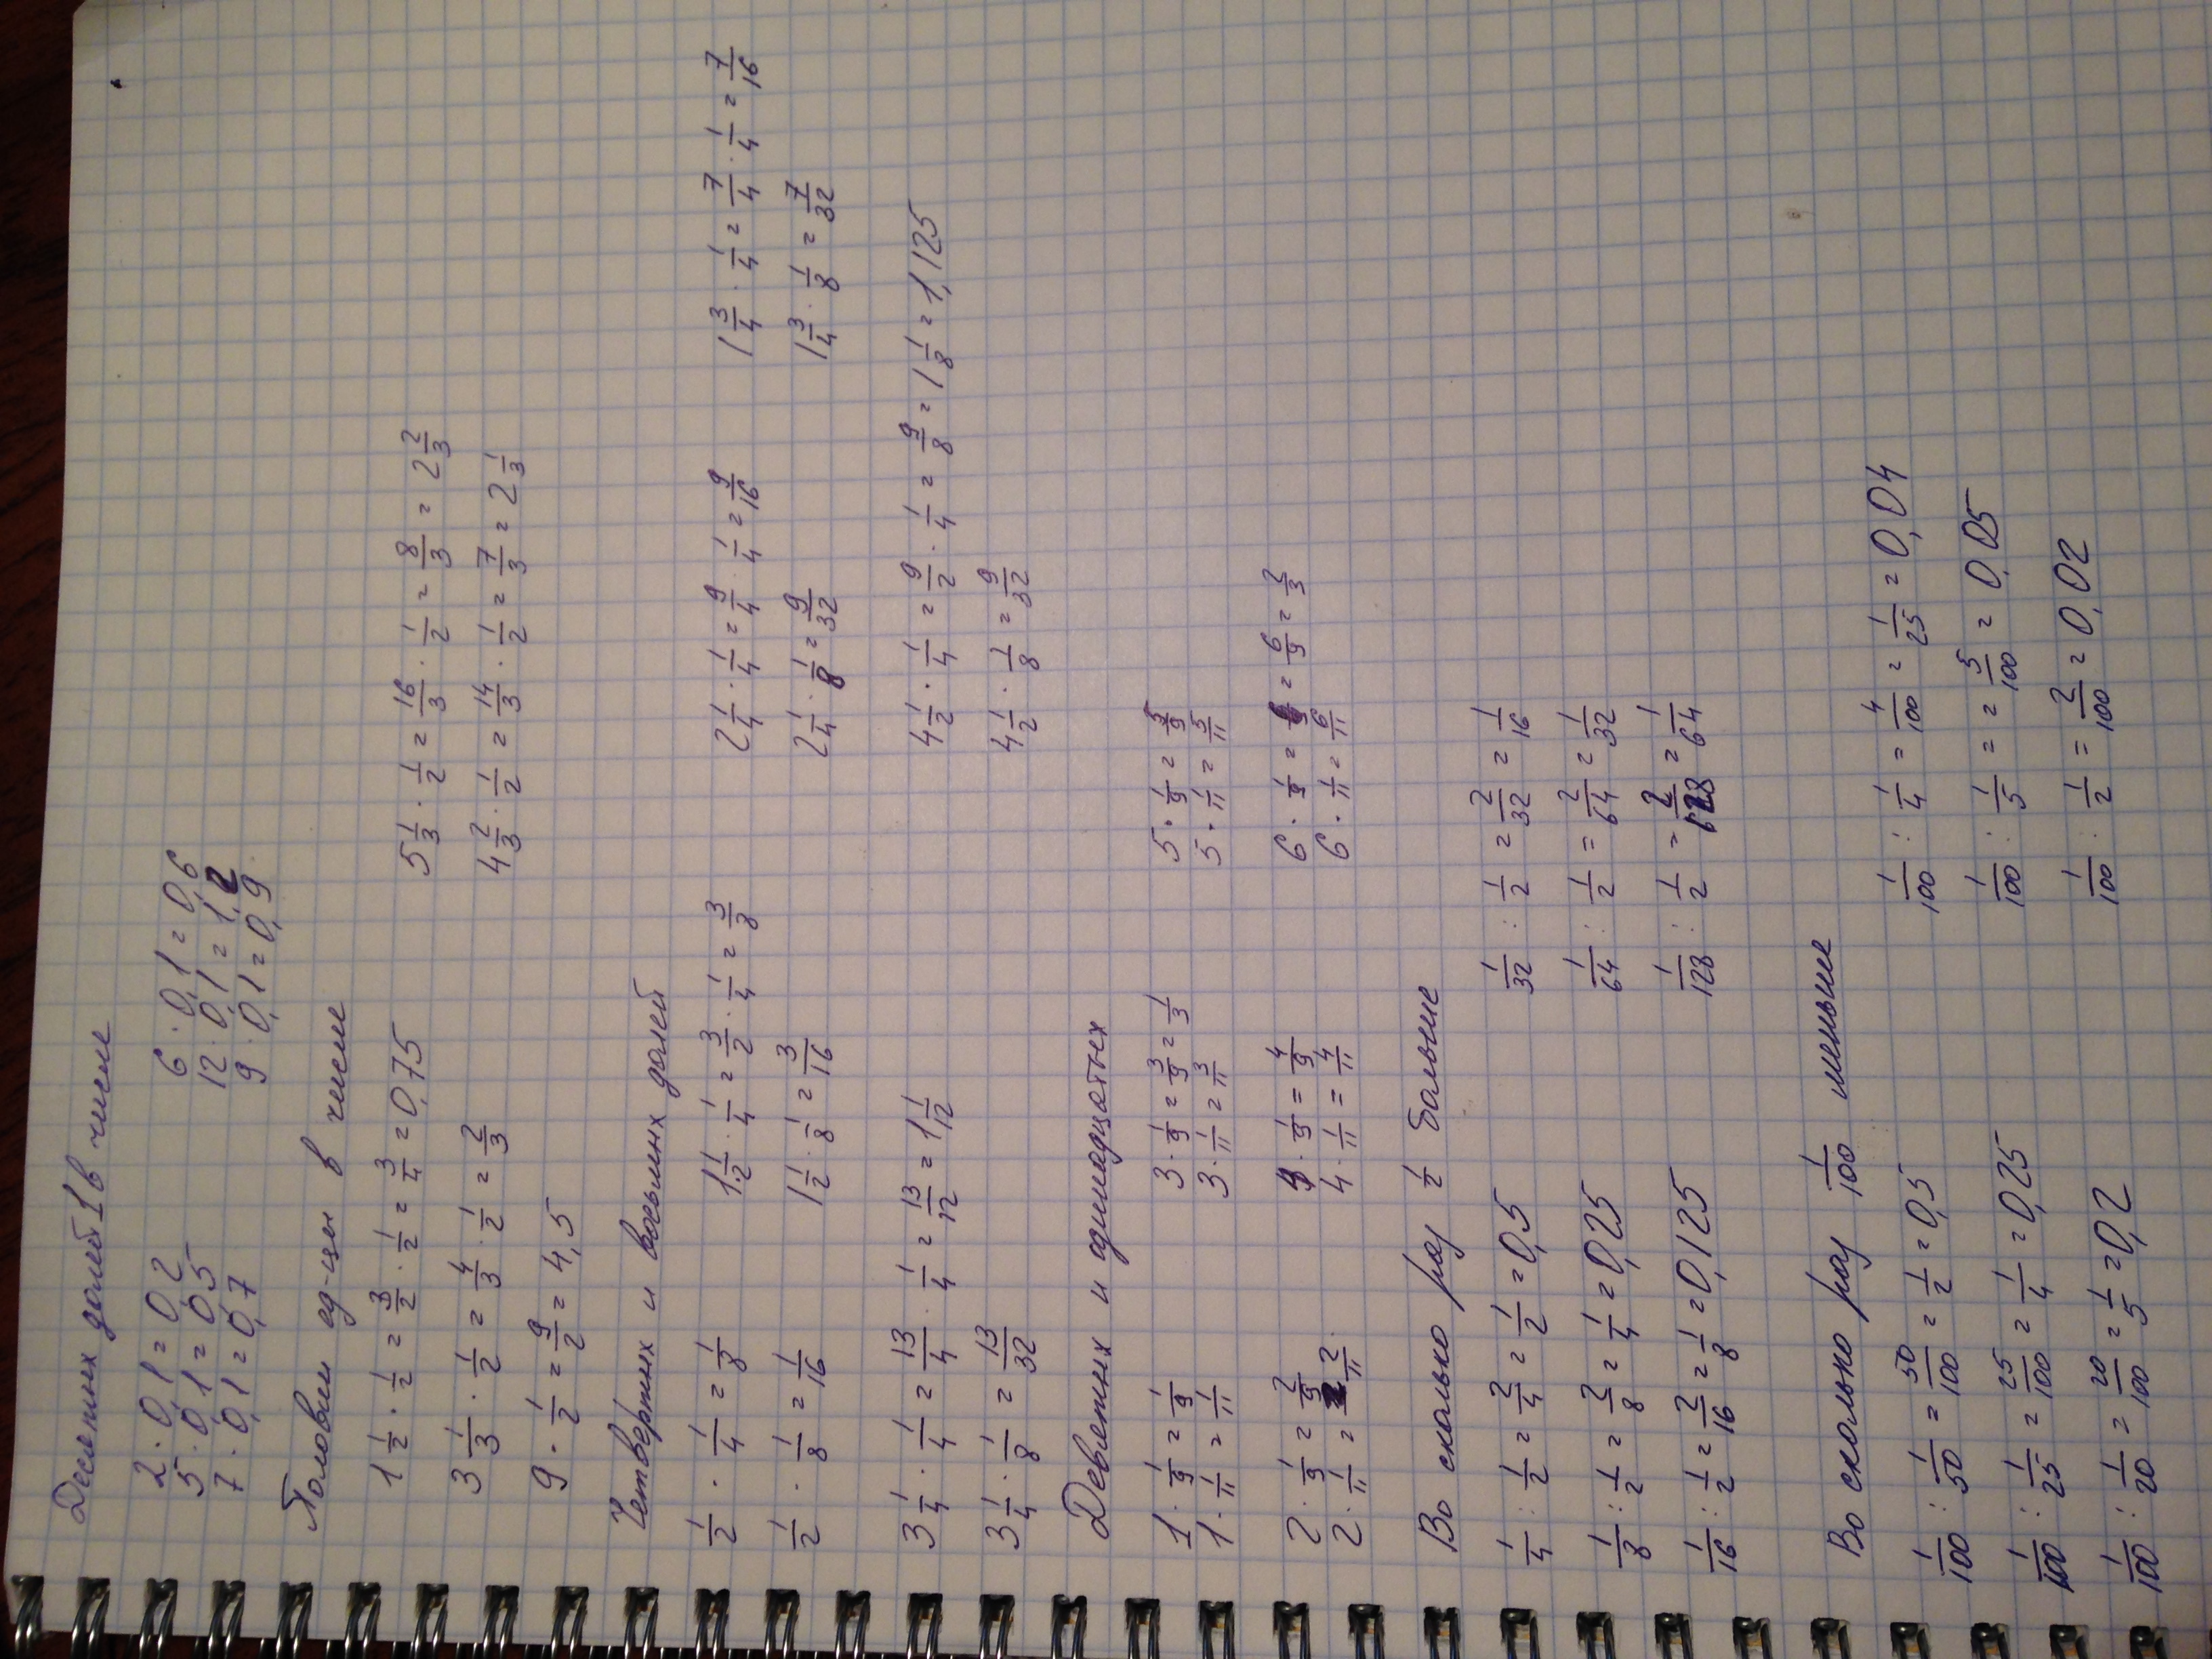 Десятых долей 1 в числе
2 · 0,1 = 0,2    6 · 0,1 = 0,6
5 · 0,1 = 0,5    12 · 0,1 = 1,2
7 · 0,1 = 0,7    9 · 0,1 = 0,9
Половин ед-цы в числе
1 1/2 · 1/2 = 3/2 · 1/2 = 3/4 = 0,75    5 1/3 · 1/2 = 16/3 · 1/2 = 8/3 = 2 2/3
3 1/3 · 1/2 = 4/3 · 1/2 = 2/3    4 2/3 · 1/2 = 14/3 · 1/2 = 7/3 = 2 1/3
9 · 1/2 = 9/2 = 4,5
Четвертных и восьмых долей
1/2 · 1/4 = 1/8    1 1/2 · 1/4 = 3/2 · 1/4 = 3/8    2 1/4 · 1/4 = 9/4 · 1/4 = 9/16    1 3/4 · 1/4 = 7/4 · 1/4 = 7/16
1/2 · 1/8 = 1/16    1 1/2 · 1/8 = 3/16    2 1/4 · 1/8 = 9/32    1 3/4 · 1/8 = 7/32
3 1/4 · 1/4 = 13/4 · 1/4 = 13/12 = 1 1/12    4 1/2 · 1/4 = 9/2 · 1/4 = 9/8 = 1 1/8 = 1,125
3 1/4 · 1/8 = 13/32    4 1/2 · 1/8 = 9/32
Девятных и одинадцатых
1 · 1/9 = 1/9    3 · 1/9 = 3/9 = 1/3    5 · 1/9 = 5/9
1 · 1/11 = 1/11    3 · 1/11 = 3/11    5 · 1/11 = 5/11
2 · 1/9 = 2/9    4 · 1/9 = 4/9    6 · 1/9 = 6/9 = 2/3
2 · 1/11 = 2/11    4 · 1/11 = 4/11    6 · 1/11 = 6/11
Во сколько раз 1/2 больше
1/4 : 1/2 = 2/4 = 1/2 = 0,5    1/32 : 1/2 = 2/32 = 1/16
1/8 : 1/2 = 2/8 = 1/4 = 0,25    1/64 : 1/2 = 2/64 = 1/32
1/16 : 1/2 = 2/16 = 1/8 = 0,125    1/128 : 1/2 = 2/128 = 1/64
Во сколько раз 1/100 меньше
1/100 : 1/50 = 50/100 = 1/2 = 0,5    1/100 : 1/4 = 4/100 = 1/25 = 0,04
1/100 : 1/25 = 25/100 = 1/4 = 0,25    1/100 : 1/5 = = 5/100 = 0,05
1/100 : 1/20 = 20/100 = 1/5 = 0,2    1/100 : 1/2 = 2/100 = 0,02